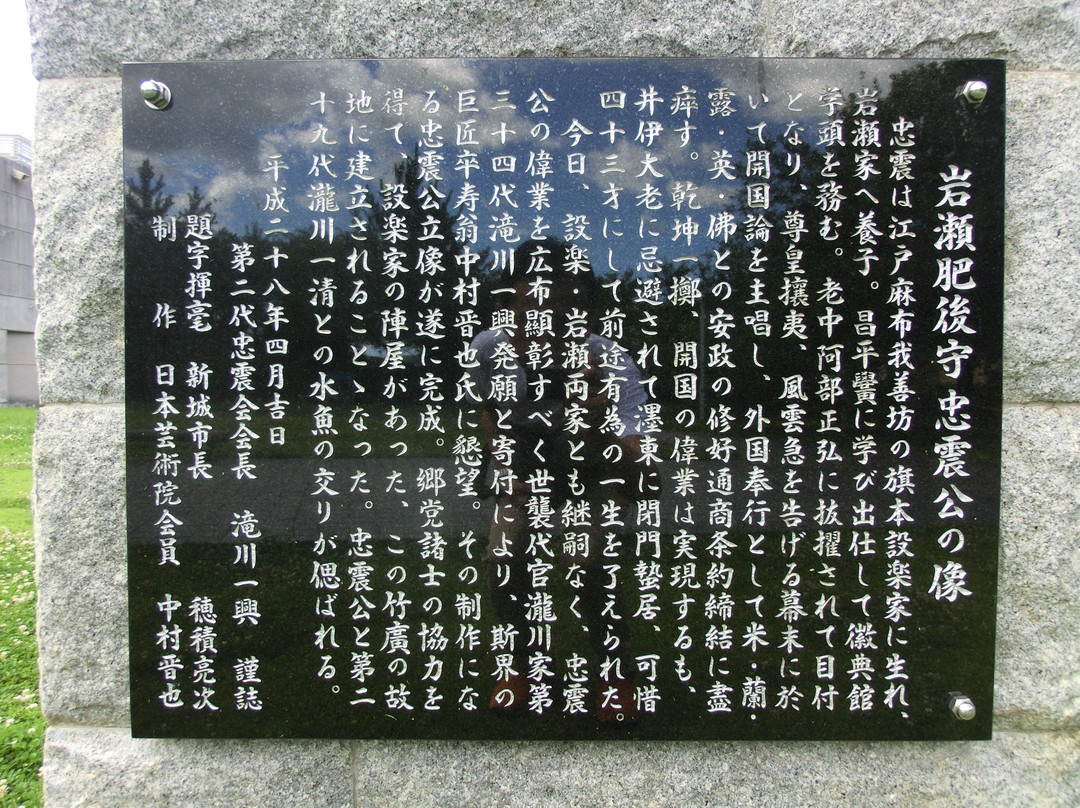 岩瀬肥後守忠震公の像
忠震は江戸麻布我善坊の旗本設楽家に生れ、
岩瀬家へ養子。昌平黌に学び出仕して徽典館
学頭を務む。老中阿部正弘に抜擢されて目付
となり、尊皇攘夷、風雲急を告げる幕末に於
いて開国論を主唱し、外国奉行として米・蘭・
露・英・佛との安政の修好通商条約締結に盡
瘁す。乾坤一擲、開国の偉業は実現するも、
井伊大老に忌避されて墨東に閉門蟄居、可惜
四十三才にして前途有為の一生を了えられた。
今日、設楽・岩瀬両家とも継嗣なく、忠震
公の偉業を広布顯彰すべく世襲代官瀧川家第
三十四代滝川一興発願と寄付により、斯界の
巨匠卒寿翁中村晋也氏に懇望。その制作にな
る忠震公立像が遂に完成。郷党諸士の協力を
得て、設楽家の陣屋があった、この竹廣の故
地に建立されることゝなった。忠震公と第二
十九代瀧川一清との水魚の交りが偲ばれる。
平成二十八年四月吉日
第二代忠震会会長 滝川一興 謹誌
題字揮毫 新城市長 穂積亮次
制作 日本芸術院会員 中村晋也